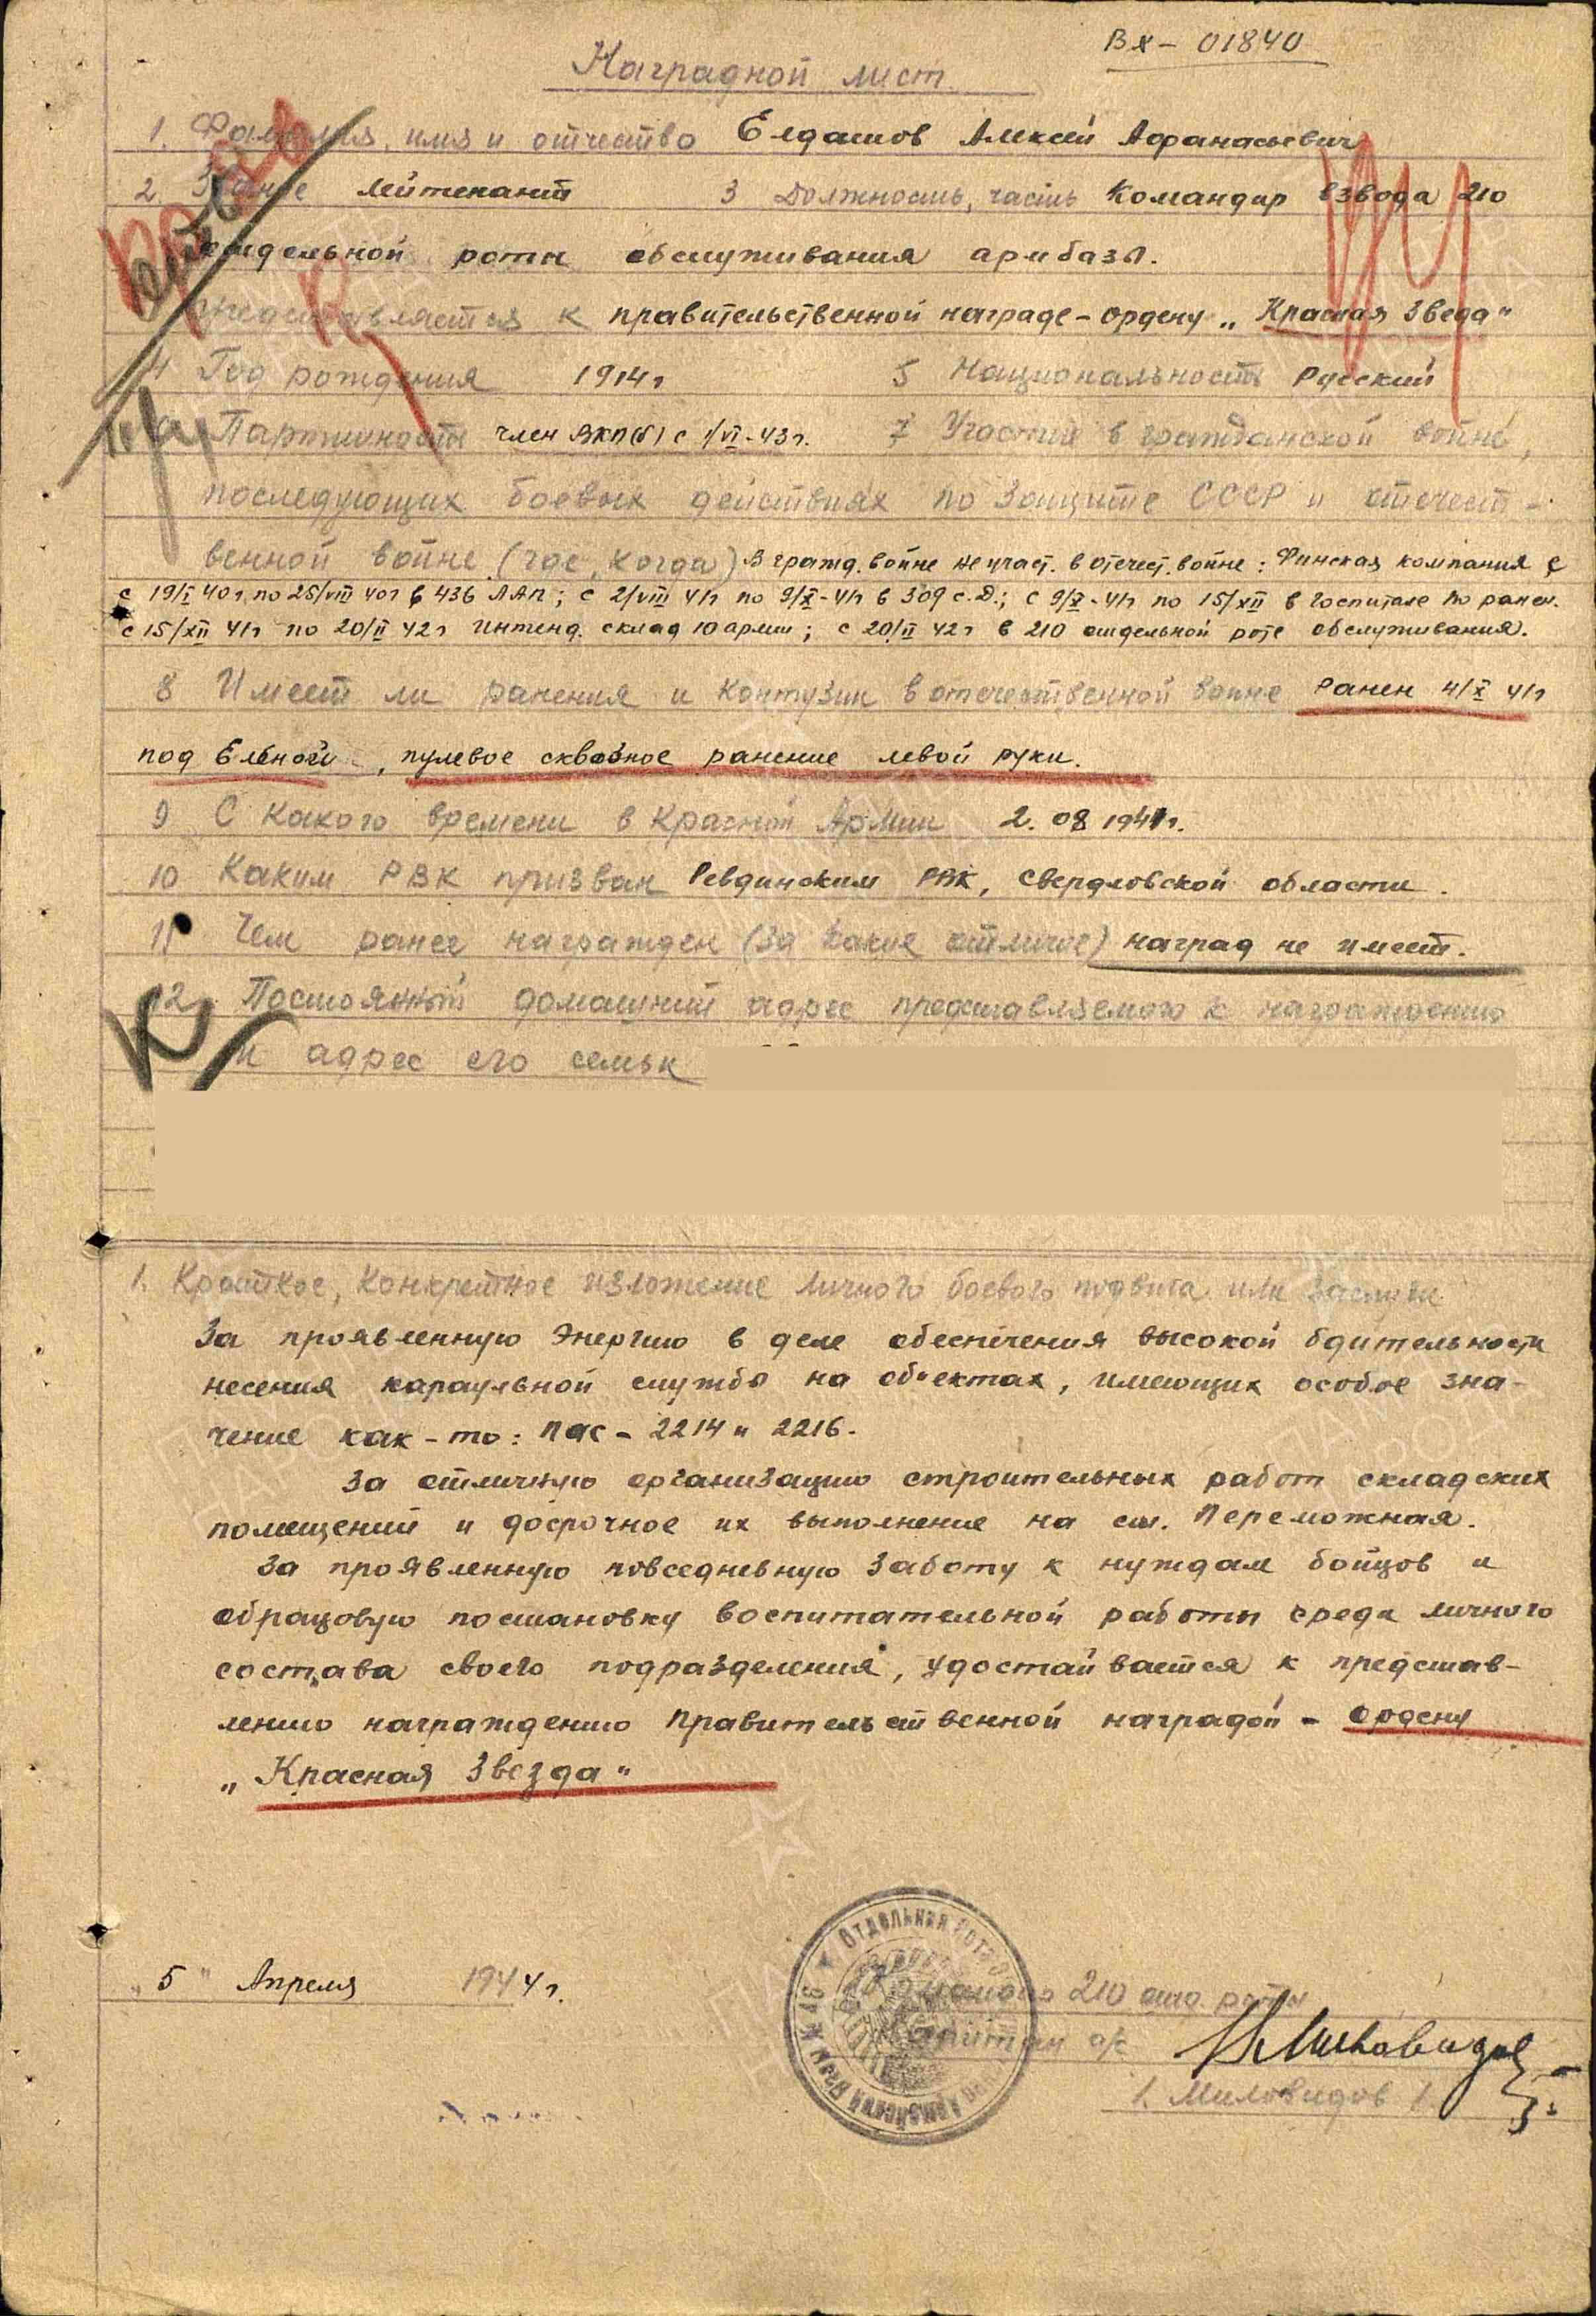 Вх - 01840
Наградной лист
1. Фамилия, имя и отчество Елдашов Алексей Афанасьевич
2. Звание лейтенант 3 Должность, часть Командир взвода 210
отдельной роты обслуживания армбазы.
представляется к правительственной награде - ордену „Красная Звезда"
4 Год рождения 1914 г 5 Национальность Русский
Партийность член ВКП(б) с 1/VI-43 г. 7 Участие в гражданской войне,
последующих боевых действиях по защите СССР и отечест-
венной войне (где, когда) В гражд. войне не участ. в отечест. войне: Финская компания с
с 19/I 40 г. по 25/VIII 40 г в 436 ЛАП; с 2/VIII 41 г по 9/X-41 г в 309 с.д.; с 9/X-41 г по 15/XII в госпитале по ранен.
с 15/XII 41 г по 20/II 42 г Интенд. склад 10 армии; с 20/II 42 г в 210 отдельной роте обслуживания.
8 Имеет ли ранения и контузии в отечественной войне Ранен 4/X 41 г
под Ельной, пулевое сквозное ранение левой руки.
9 С какого времени в Красной Армии 2.08 1941 г.
10 Каким РВК призван Ревдинским РВК, Свердловской области.
11 Чем ранее награжден (за какие отличие) наград не имеет.
12 Постоянный домашний адрес представляемого к награждению
и адрес его семьи
1. Краткое, конкретное изложение личного боевого подвига или заслуги
За проявленную энергию в деле обеспечения высокой бдительности
несения караульной службы на об'ектах, имеющих особое зна-
чение как-то: ПАС - 2214 и 2216.
За отличную организацию строительных работ складских
помещений и досрочное их выполнение на ст. Переможная.
За проявленную повседневную заботу к нуждам бойцов и
образцовую постановку воспитательной работы среди личного
состава своего подразделения, удостаивается к представ-
лению награждению правительственной наградой - ордену
„Красная Звезда"
„5" Апреля 1944 г.
Отдельная рота
210 отд. роты
Капитан а/с
/. Миловидов /.